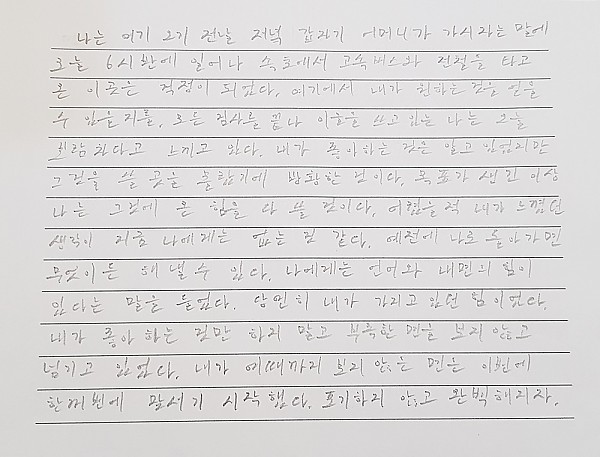 나는 여기 오기 전날 저녁 갑자기 어머니가 가시자는 말에
오늘 6시 반에 일어나 속초에서 고속버스와 전철을 타고
온 이곳은 걱정이 되었다. 여기에서 내가 원하는 것을 얻을
수 있을지를. 모든 검사를 끝나 이 글을 쓰고 있는 나는 오늘
보람찼다고 느끼고 있다. 내가 좋아하는 것은 알고 있었지만
그것을 쓸 곳을 몰랐기에 방황한 것이다. 목표가 생긴 이상
나는 그것에 온 힘을 다 쓸 것이다. 어렸을 적 내가 느꼈던
생각이 지금 나에게는 없는 것 같다. 예전에 나로 돌아가면
무엇이든 해낼 수 있다. 나에게는 언어와 내면의 힘이
있다는 말을 들었다. 당연히 내가 가지고 있던 힘이었다.
내가 좋아하는 것만 하지 말고 부족한 면을 보지 않고
넘기고 있었다. 내가 여때까지 보지 않는 면을 이번에
한꺼번에 맞서기 시작했다. 포기하지 않고 완벽해지자.